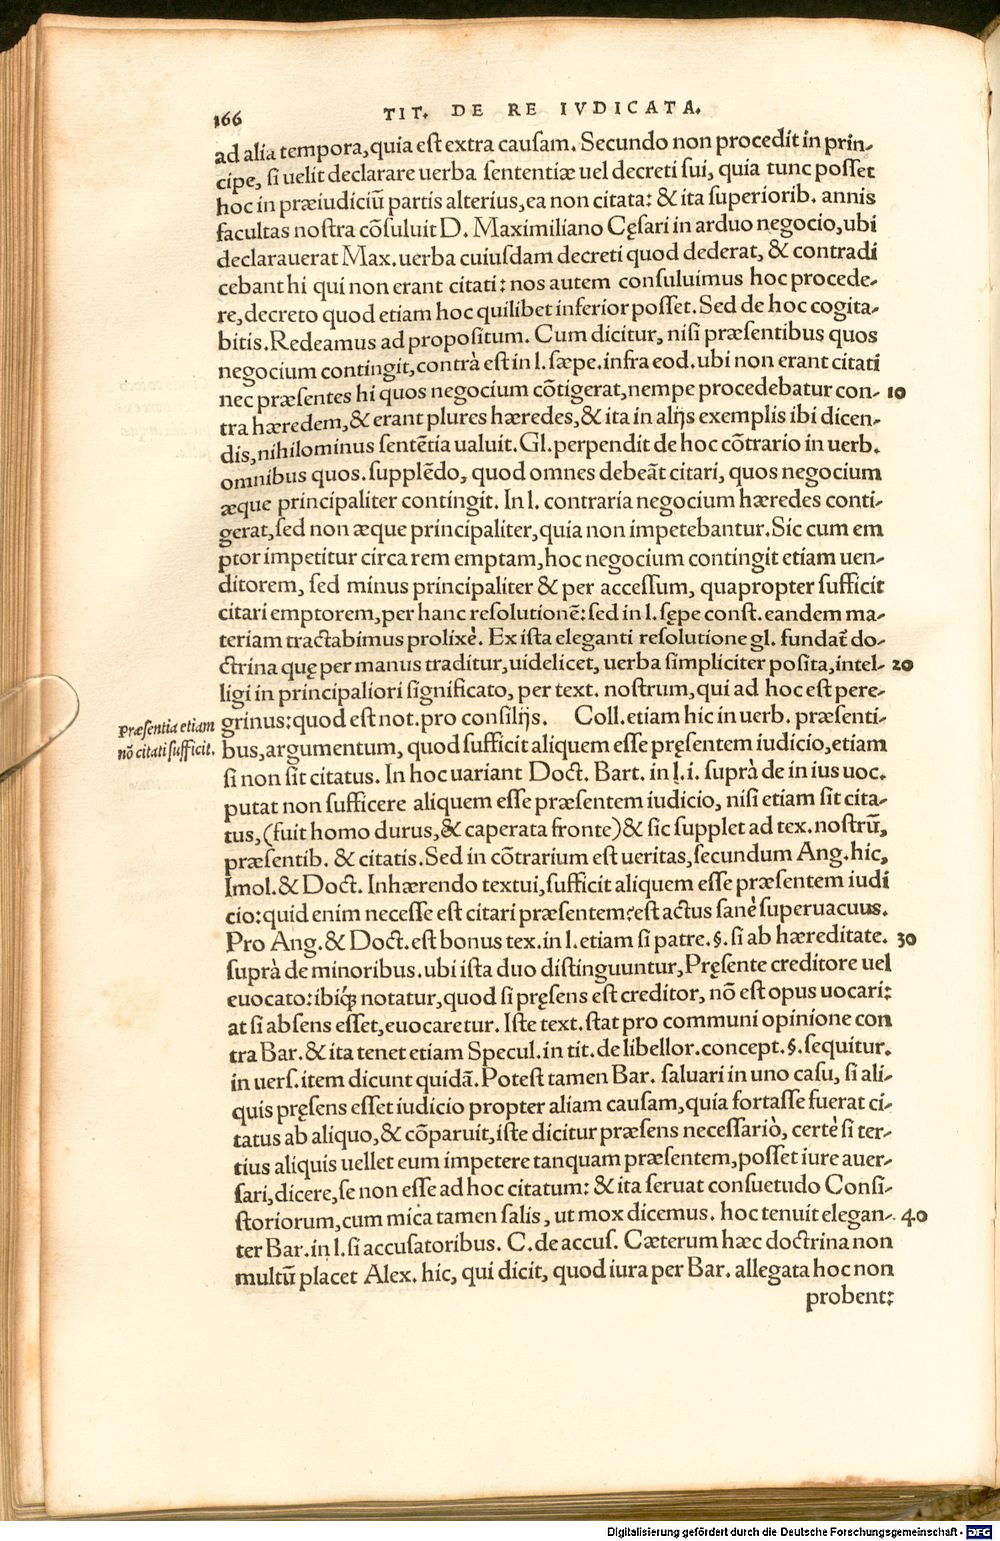 166 TIT. DE RE IVDICATA.
ad alia tempora, quia est extra causam. Secundo non procedit in prin-
cipe, si uelit declarare uerba sententiæ uel decreti sui, quia tunc posset
hoc in præiudiciũ partis alterius, ea non citata: & ita superiorib. annis
facultas nostra cõsuluit D. Maximiliano Cęsari in arduo negocio, ubi
declarauerat Max. uerba cuiusdam decreti quod dederat, & contradi
cebant hi qui non erant citati: nos autem consuluimus hoc procede-
re, decreto quod etiam hoc quilibet inferior posset. Sed de hoc cogita-
bitis. Redeamus ad propositum. Cum dicitur, nisi præsentibus quos
negocium contingit, contrà est in l. sæpe. infra eod. ubi non erant citati
nec præsentes hi quos negocium cõtigerat, nempe procedebatur con- 10
tra hæredem, & erant plures hæredes, & ita in alijs exemplis ibi dicen-
dis, nihilominus sentẽtia ualuit. Gl. perpendit de hoc cõtrario in uerb.
omnibus quos. supplẽdo, quod omnes debeãt citari, quos negocium
æque principaliter contingit. In l. contraria negocium hæredes conti-
gerat, sed non æque principaliter, quia non impetebantur. Sic cum em
ptor impetitur circa rem emptam, hoc negocium contingit etiam uen-
ditorem, sed minus principaliter & per accessum, quapropter sufficit
citari emptorem, per hanc resolutionẽ: sed in l. sępe const. eandem ma-
teriam tractabimus prolixè. Ex ista eleganti resolutione gl. fundat̃ do-
ctrina quę per manus traditur, uidelicet, uerba simpliciter posita, intel- 20
ligi in principaliori significato, per text. nostrum, qui ad hoc est pere-
grinus: quod est not. pro consilijs. Coll. etiam hic in uerb. præsenti-
Præsentia etiam
nõ citati sufficit.
bus, argumentum, quod sufficit aliquem esse pręsentem iudicio, etiam
si non sit citatus. In hoc uariant Doct. Bart. in l. i. suprà de in ius uoc.
putat non sufficere aliquem esse præsentem iudicio, nisi etiam sit cita-
tus, (fuit homo durus, & caperata fronte) & sic supplet ad tex. nostrũ,
præsentib. & citatis. Sed in cõtrarium est ueritas, secundum Ang. hic,
Imol. & Doct. Inhærendo textui, sufficit aliquem esse præsentem iudi
cio: quid enim necesse est citari præsentem? est actus sanè superuacuus.
Pro Ang. & Doct. est bonus tex. in l. etiam si patre. §. si ab hæreditate. 30
suprà de minoribus. ubi ista duo distinguuntur, Pręsente creditore uel
euocato: ibiq́ꝫ notatur, quod si pręsens est creditor, nõ est opus uocari:
at si absens esset, euocaretur. Iste text. stat pro communi opinione con
tra Bar. & ita tenet etiam Specul. in tit. de libellor. concept. §. sequitur.
in uers. item dicunt quidã. Potest tamen Bar. saluari in uno casu, si ali-
quis pręsens esset iudicio propter aliam causam, quia fortasse fuerat ci-
tatus ab aliquo, & cõparuit, iste dicitur præsens necessariò, certè si ter-
tius aliquis uellet eum impetere tanquam præsentem, posset iure auer-
sari, dicere, se non esse ad hoc citatum: & ita seruat consuetudo Consi-
storiorum, cum mica tamen salis, ut mox dicemus. hoc tenuit elegan- 40
ter Bar. in l. si accusatoribus. C. de accus. Cæterum hæc doctrina non
multũ placet Alex. hic, qui dicit, quod iura per Bar. allegata hoc non
probent:
Digitalisierung gefördert durch die Deutsche Forschungsgemeinschaft - DFG